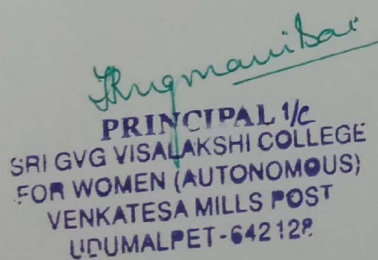 PRINCIPAL I/C
SRI GVG VISALAKSHI COLLEGE
FOR WOMEN (AUTONOMOUS)
VENKATESA MILLS POST
UDUMALPET-642128